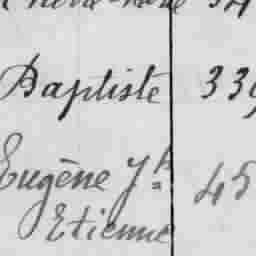 Baptiste 339
Eugène Jh 45
Etienne